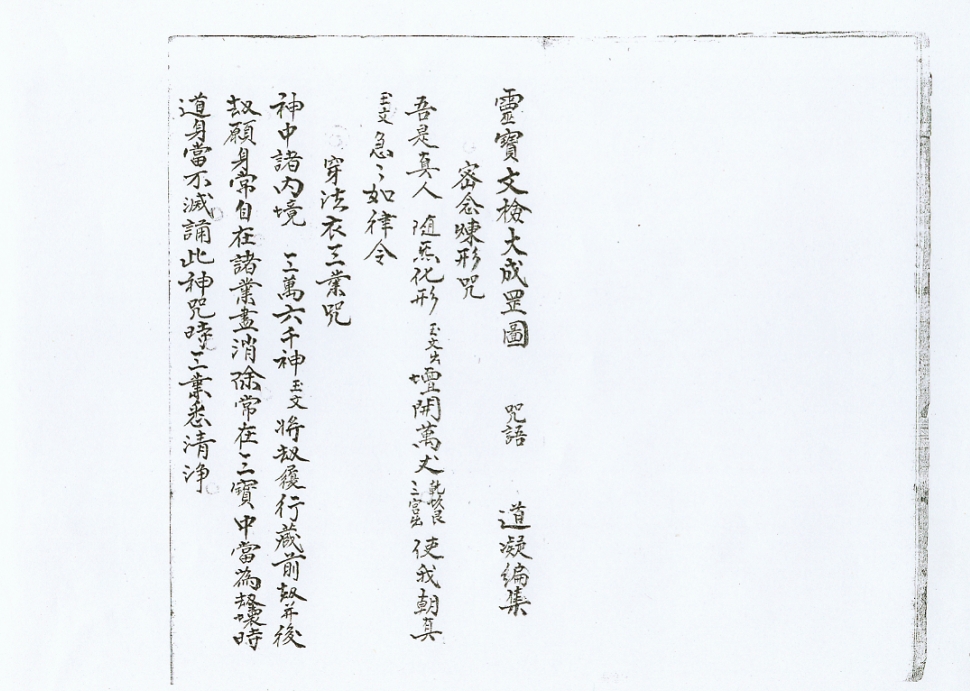 靈寶文檢大成罡圖 咒語 道凝編集
密念煉形咒
吾是真人 隨炁化形 玉文出 壇開萬丈 乾坎艮三宮出 使我朝真
玉文 急〻如律令
穿法衣三業咒
神中諸內境 三萬六千神 玉文 將刼履行藏前刼并後
刼願身常自在諸業盡消除常在三寶中當為刼壞時
道身當不滅誦此神咒時三業悉清淨